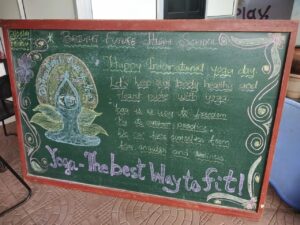 Brilliant Future High School
Happy International yoga day
Let's keep our body healthy and
heart pure with yoga.
Yoga is a way to freedom
By its constant practice
We can free ourselves from
and
Yoga - The best Way to fit!